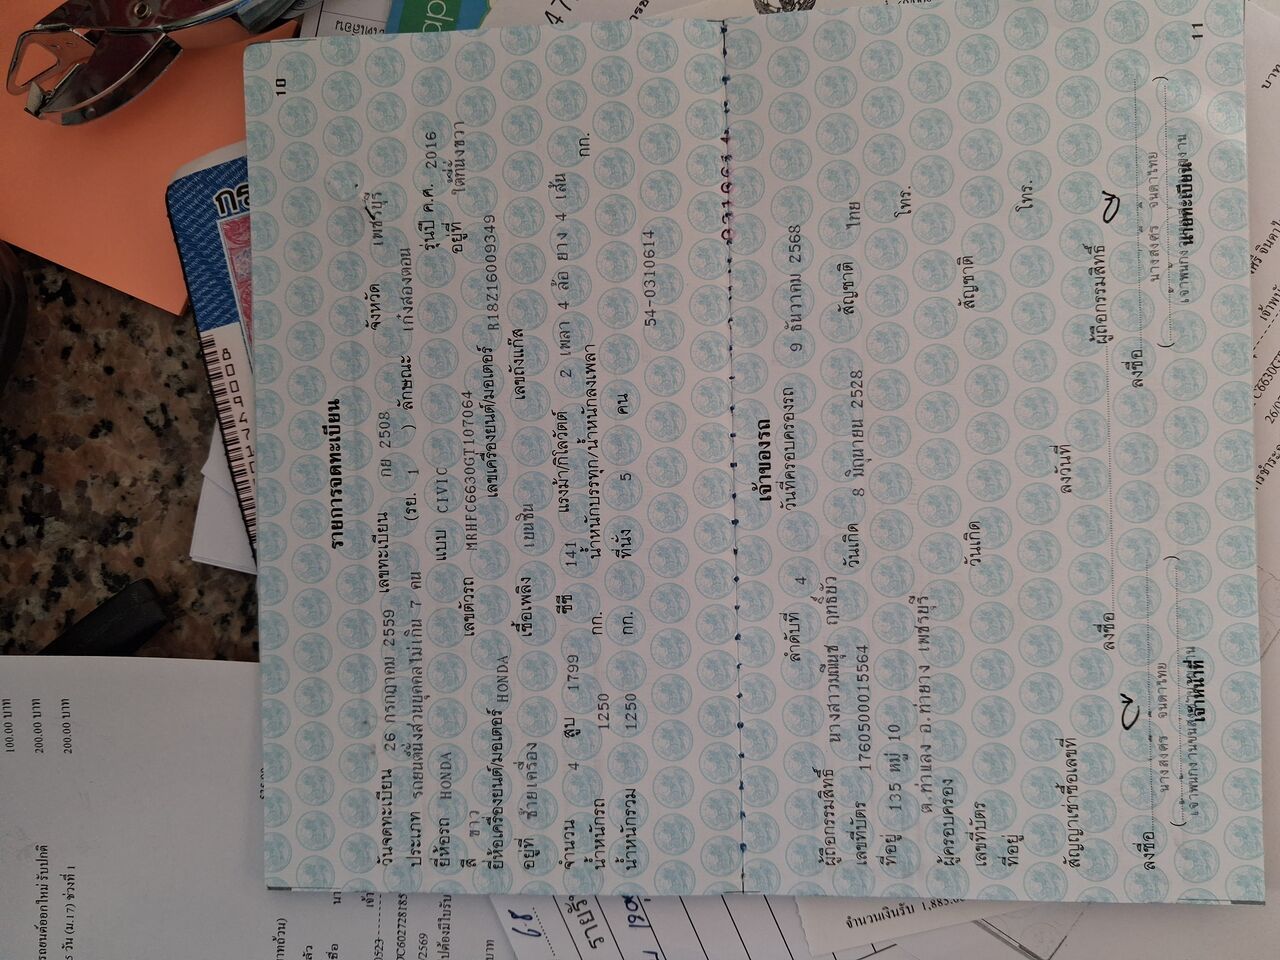 10
รายการจดทะเบียน
วันจดทะเบียน 26 กรกฎาคม 2559 เลขทะเบียน กย 2508 จังหวัด เพชรบุรี
ประเภท รถยนต์นั่งส่วนบุคคลไม่เกิน 7 คน (รย. 1 ) ลักษณะ เก๋งสองตอน
ยี่ห้อรถ HONDA แบบ CIVIC รุ่นปี ค.ศ. 2016
สี ขาว เลขตัวรถ MRHFC6630GT107064 อยู่ที่ ใต้ที่นั่งขวา
ยี่ห้อเครื่องยนต์/มอเตอร์ HONDA เลขเครื่องยนต์/มอเตอร์ R18Z16009349
อยู่ที่ ซ้ายเครื่อง เชื้อเพลิง เบนซิน เลขถังแก๊ส
จำนวน 4 สูบ 1799 ซีซี 141 แรงม้า/กิโลวัตต์ 2 เพลา 4 ล้อ ยาง 4 เส้น
น้ำหนักรถ 1250 กก. น้ำหนักบรรทุก/น้ำหนักลงเพลา กก.
น้ำหนักรวม 1250 กก. ที่นั่ง 5 คน
54-0310614
เจ้าของรถ
ลำดับที่ 4 วันที่ครอบครองรถ 9 ธันวาคม 2568
ผู้ถือกรรมสิทธิ์ นางสาวมณีนุช ฤทธิ์ยิ้ว
เลขที่บัตร 1760500015564 วันเกิด 8 มิถุนายน 2528 สัญชาติ ไทย
ที่อยู่ 135 หมู่ 10 โทร.
ต.ท่าแลง อ.ท่ายาง เพชรบุรี
ผู้ครอบครอง
เลขที่บัตร วันเกิด สัญชาติ
ที่อยู่ โทร.
สัญญาเช่าซื้อเลขที่ ลงวันที่
ลงชื่อ ผู้ถือกรรมสิทธิ์
ลงชื่อ
ลงชื่อ
นางสงศรี จินดาไทย
นางสงศรี จินดาไทย
เจ้าหน้าที่
นายทะเบียน
11
100.00 บาท
200.00 บาท
200.00 บาท
จำนวนเงินรับ